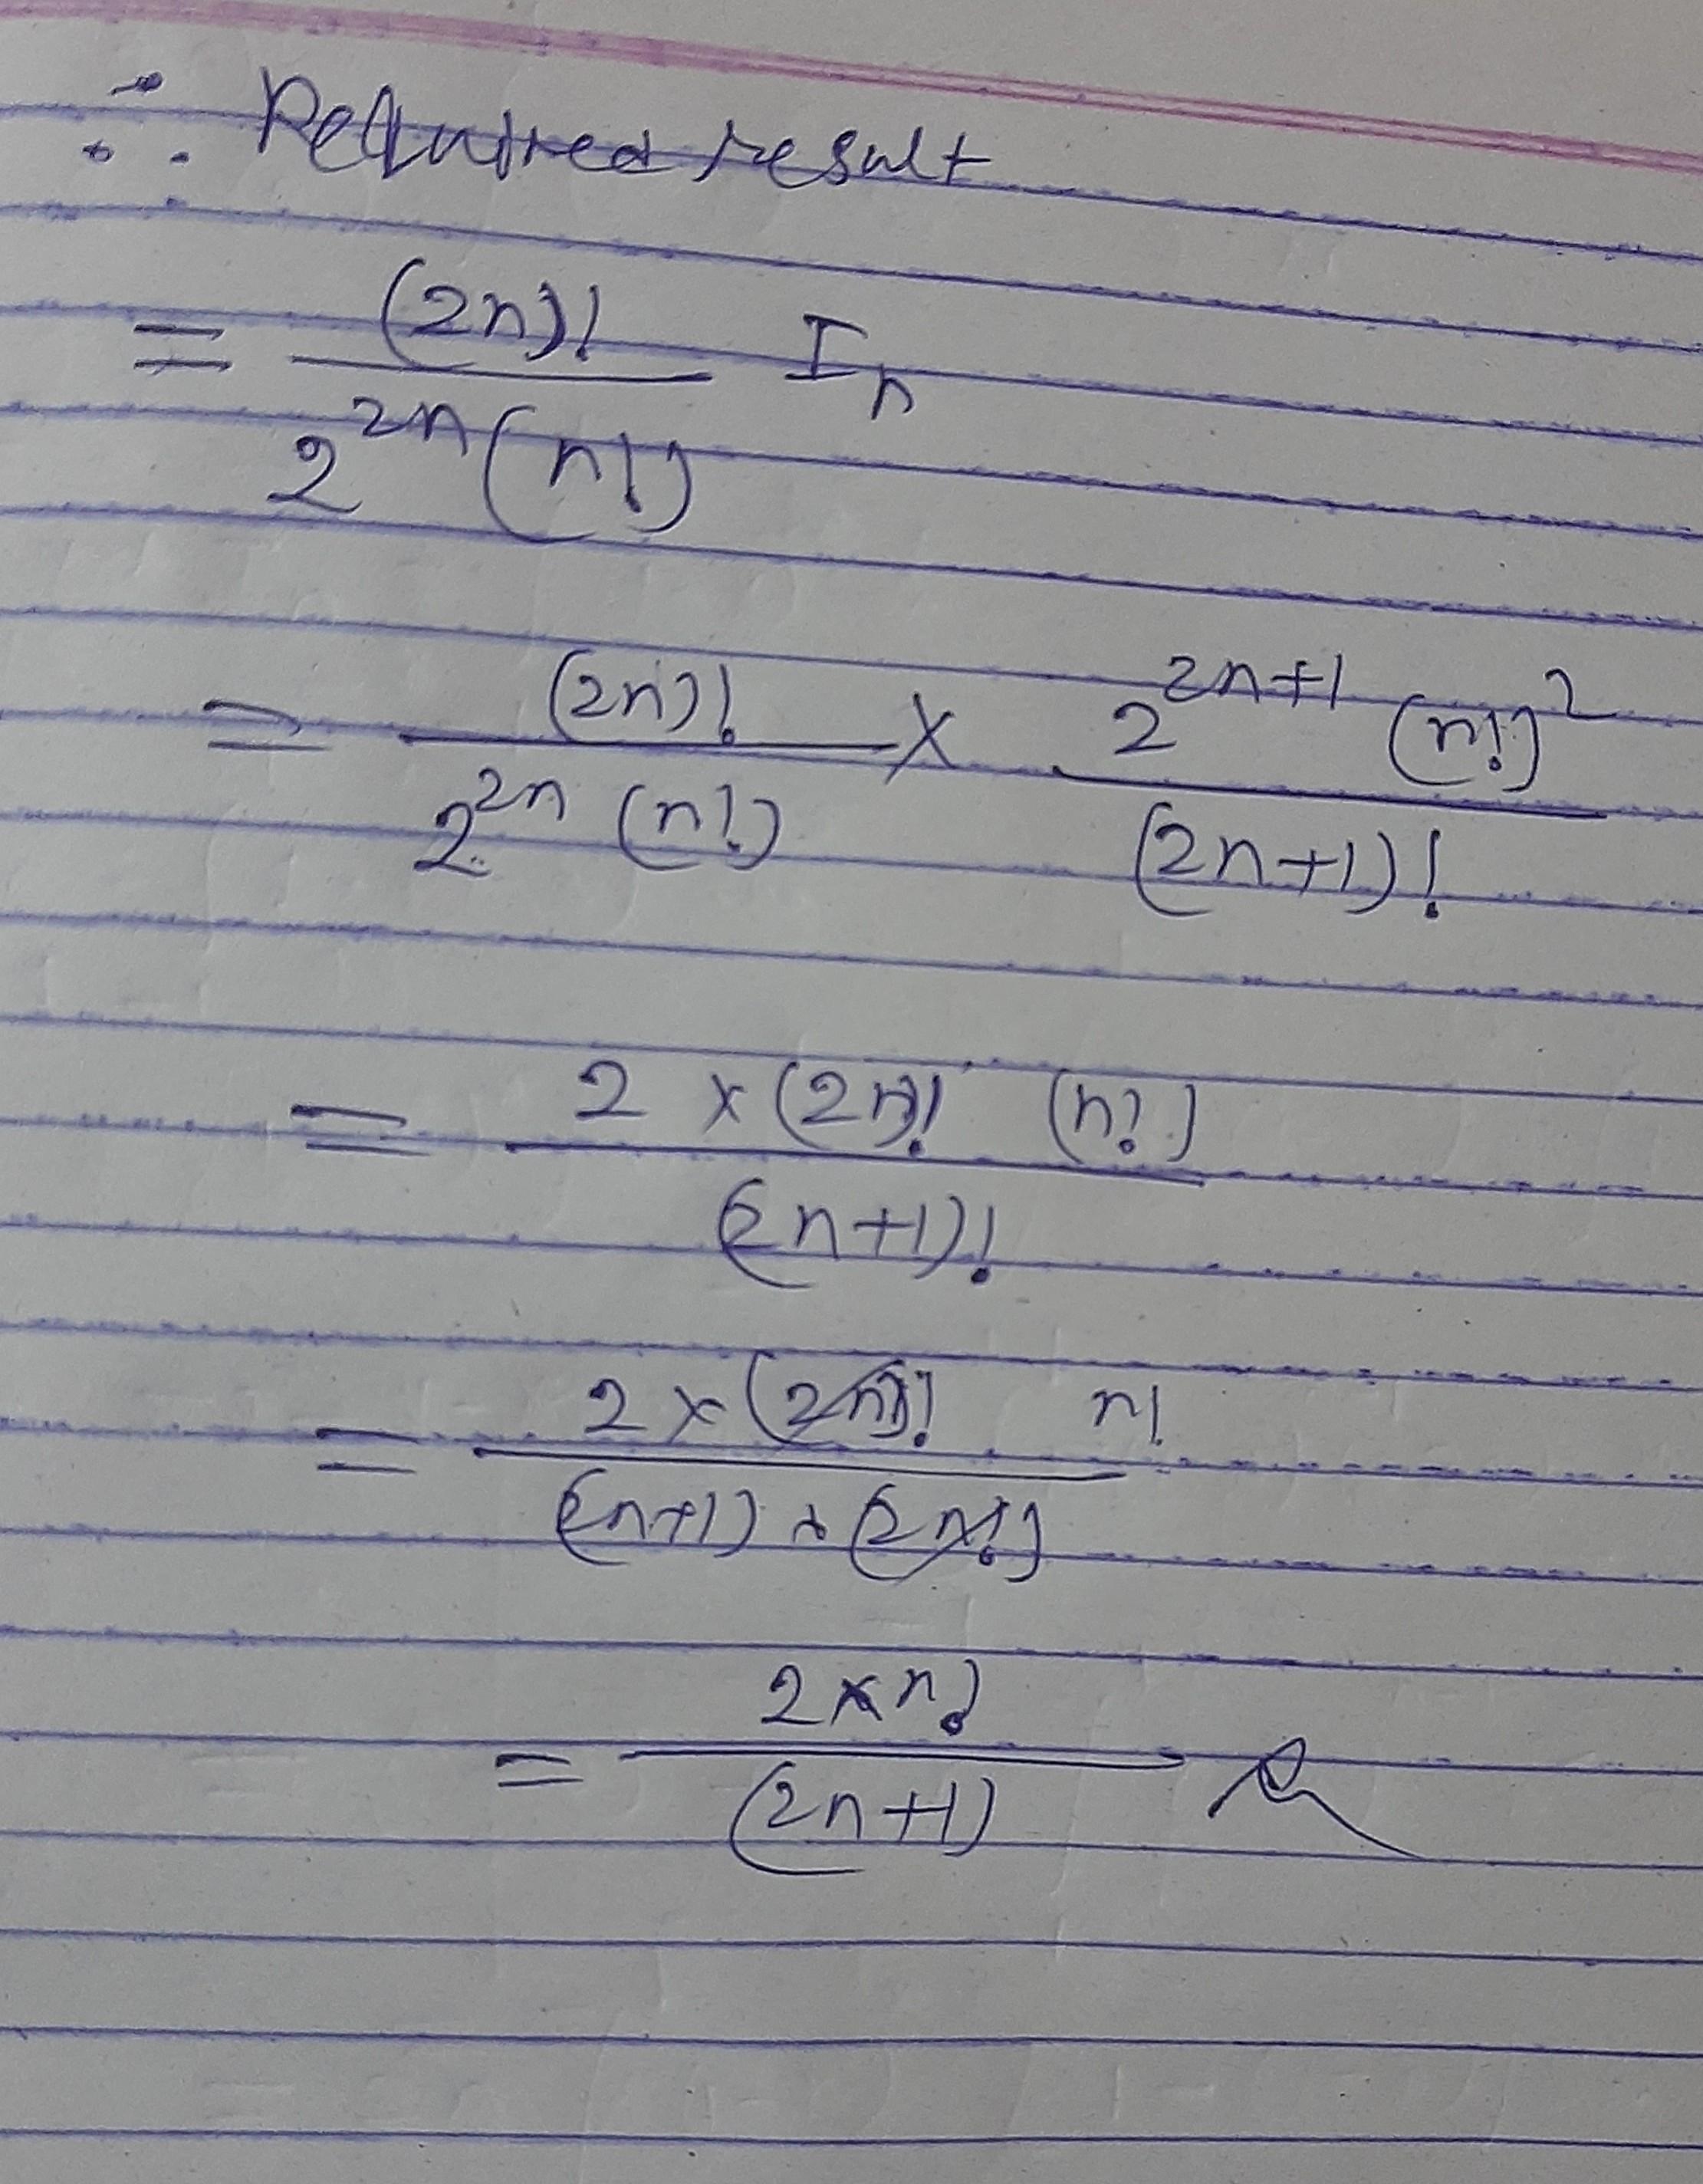 ∴ Required result
= (2n)! / 2^{2n} (n!) I_n
= (2n)! / 2^{2n} (n!) × 2^{2n+1} (n!)^2 / (2n+1)!
= 2 × (2n)! (n!) / (2n+1)!
= 2 × (2n)! n! / (2n+1) × (2n!)
= 2 × n! / (2n+1)